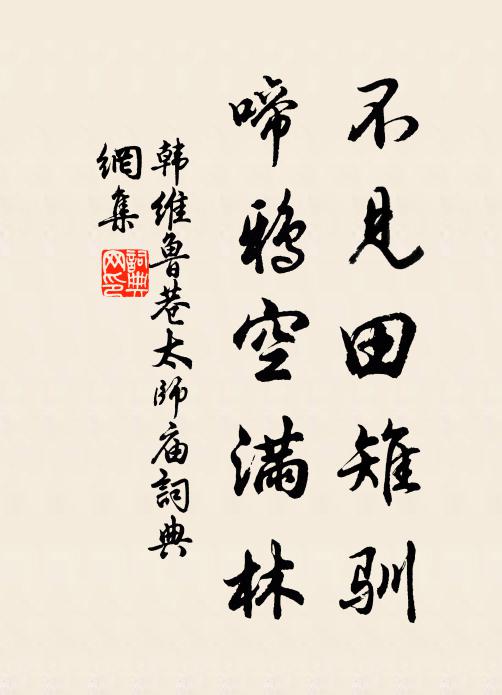 不见田雉驯
啼鸦空满林
韩维鲁巷太师庙詞典
網集
詞典网印